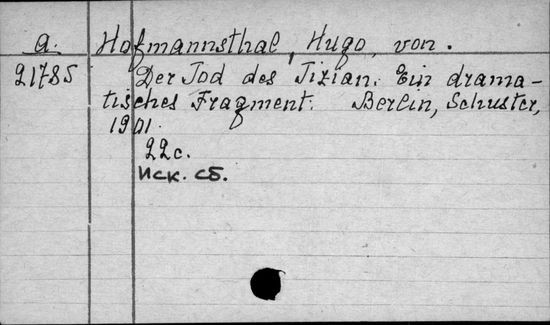 a. Hofmannsthal, Hugo, von.
21785 Der Tod des Tizian. Ein drama-
tisches Fragment. Berlin, Schuster,
1901.
22с.
Иск. сб.